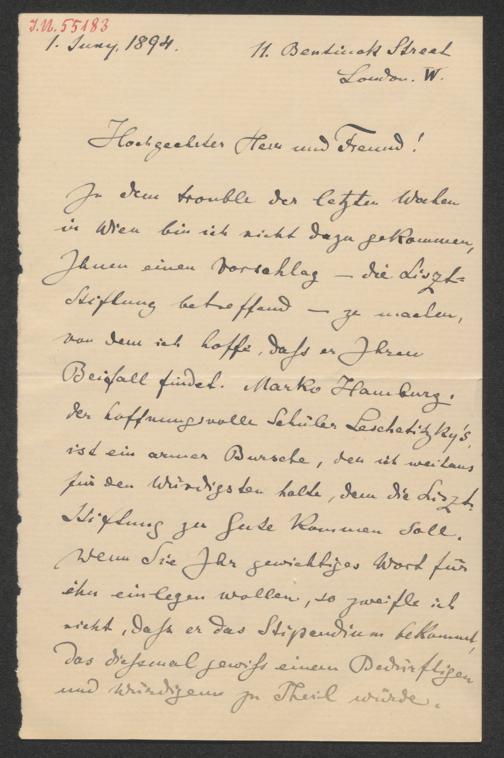 J.N. 55183
1. Juny. 1894.
11. Bentinck Street
London. W.
Hochgeehrter Herr und Freund!
In dem trouble der letzten Wochen
in Wien bin ich nicht dazu gekommen,
Ihnen einen Vorschlag – die Liszt-
Stiftung betreffend – zu machen,
von dem ich hoffe, daſs er Ihren
Beifall findet. Marko Hamburg,
der hoffnungsvolle Schüler Leschetitzky's,
ist ein armer Bursche, den ich weitaus
für den Würdigsten halte, dem die Liszt-
Stiftung zu Gute kommen soll.
Wenn Sie Ihr gewichtiges Wort für
ihn einlegen wollen, so zweifle ich
nicht, daſs er das Stipendium bekommt,
das dieſsmal gewiſs einem Bedürftigen
und Würdigem zu Theil würde.